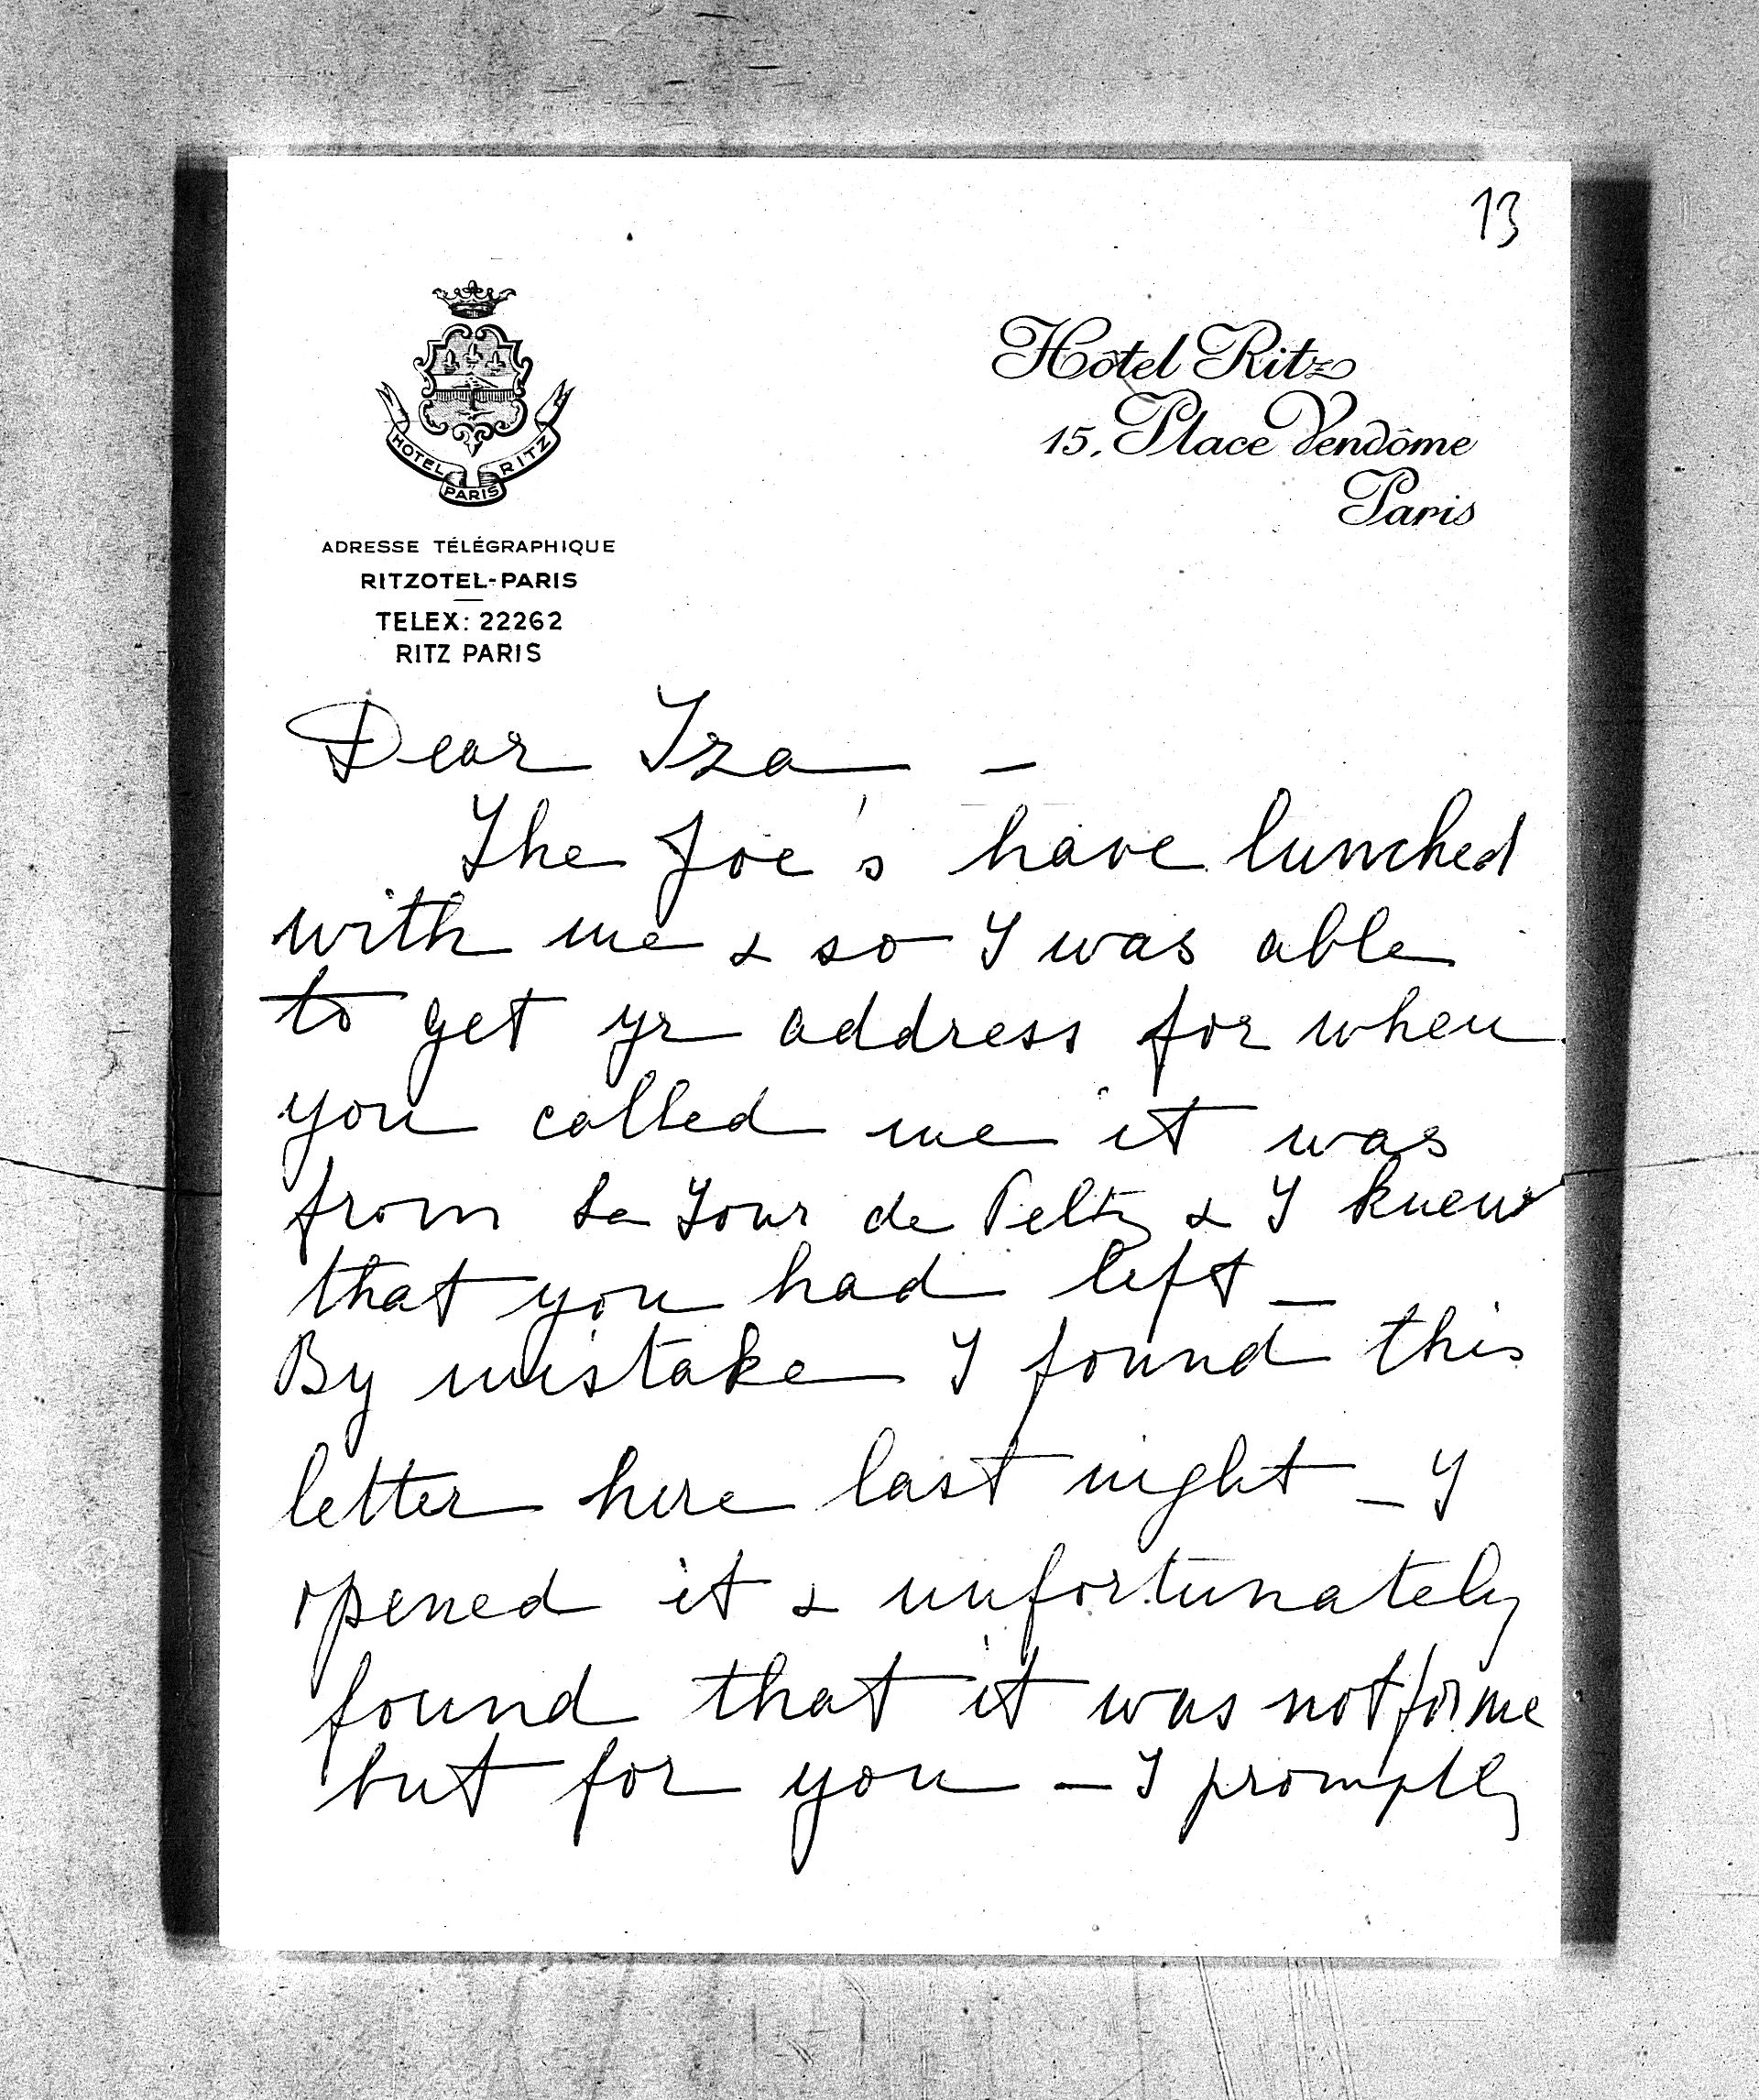 13
HOTEL RITZ
PARIS
Hôtel Ritz
15, Place Vendôme
Paris
ADRESSE TÉLÉGRAPHIQUE
RITZOTEL-PARIS
TELEX: 22262
RITZ PARIS
Dear Iza –
The Joe's have lunched
with me & so I was able
to get yr address for when
you called me it was
from La Tour de Peltz & I knew
that you had left –
By mistake I found this
letter here last night – I
opened it & unfortunately
found that it was not for me
but for you – I promptly